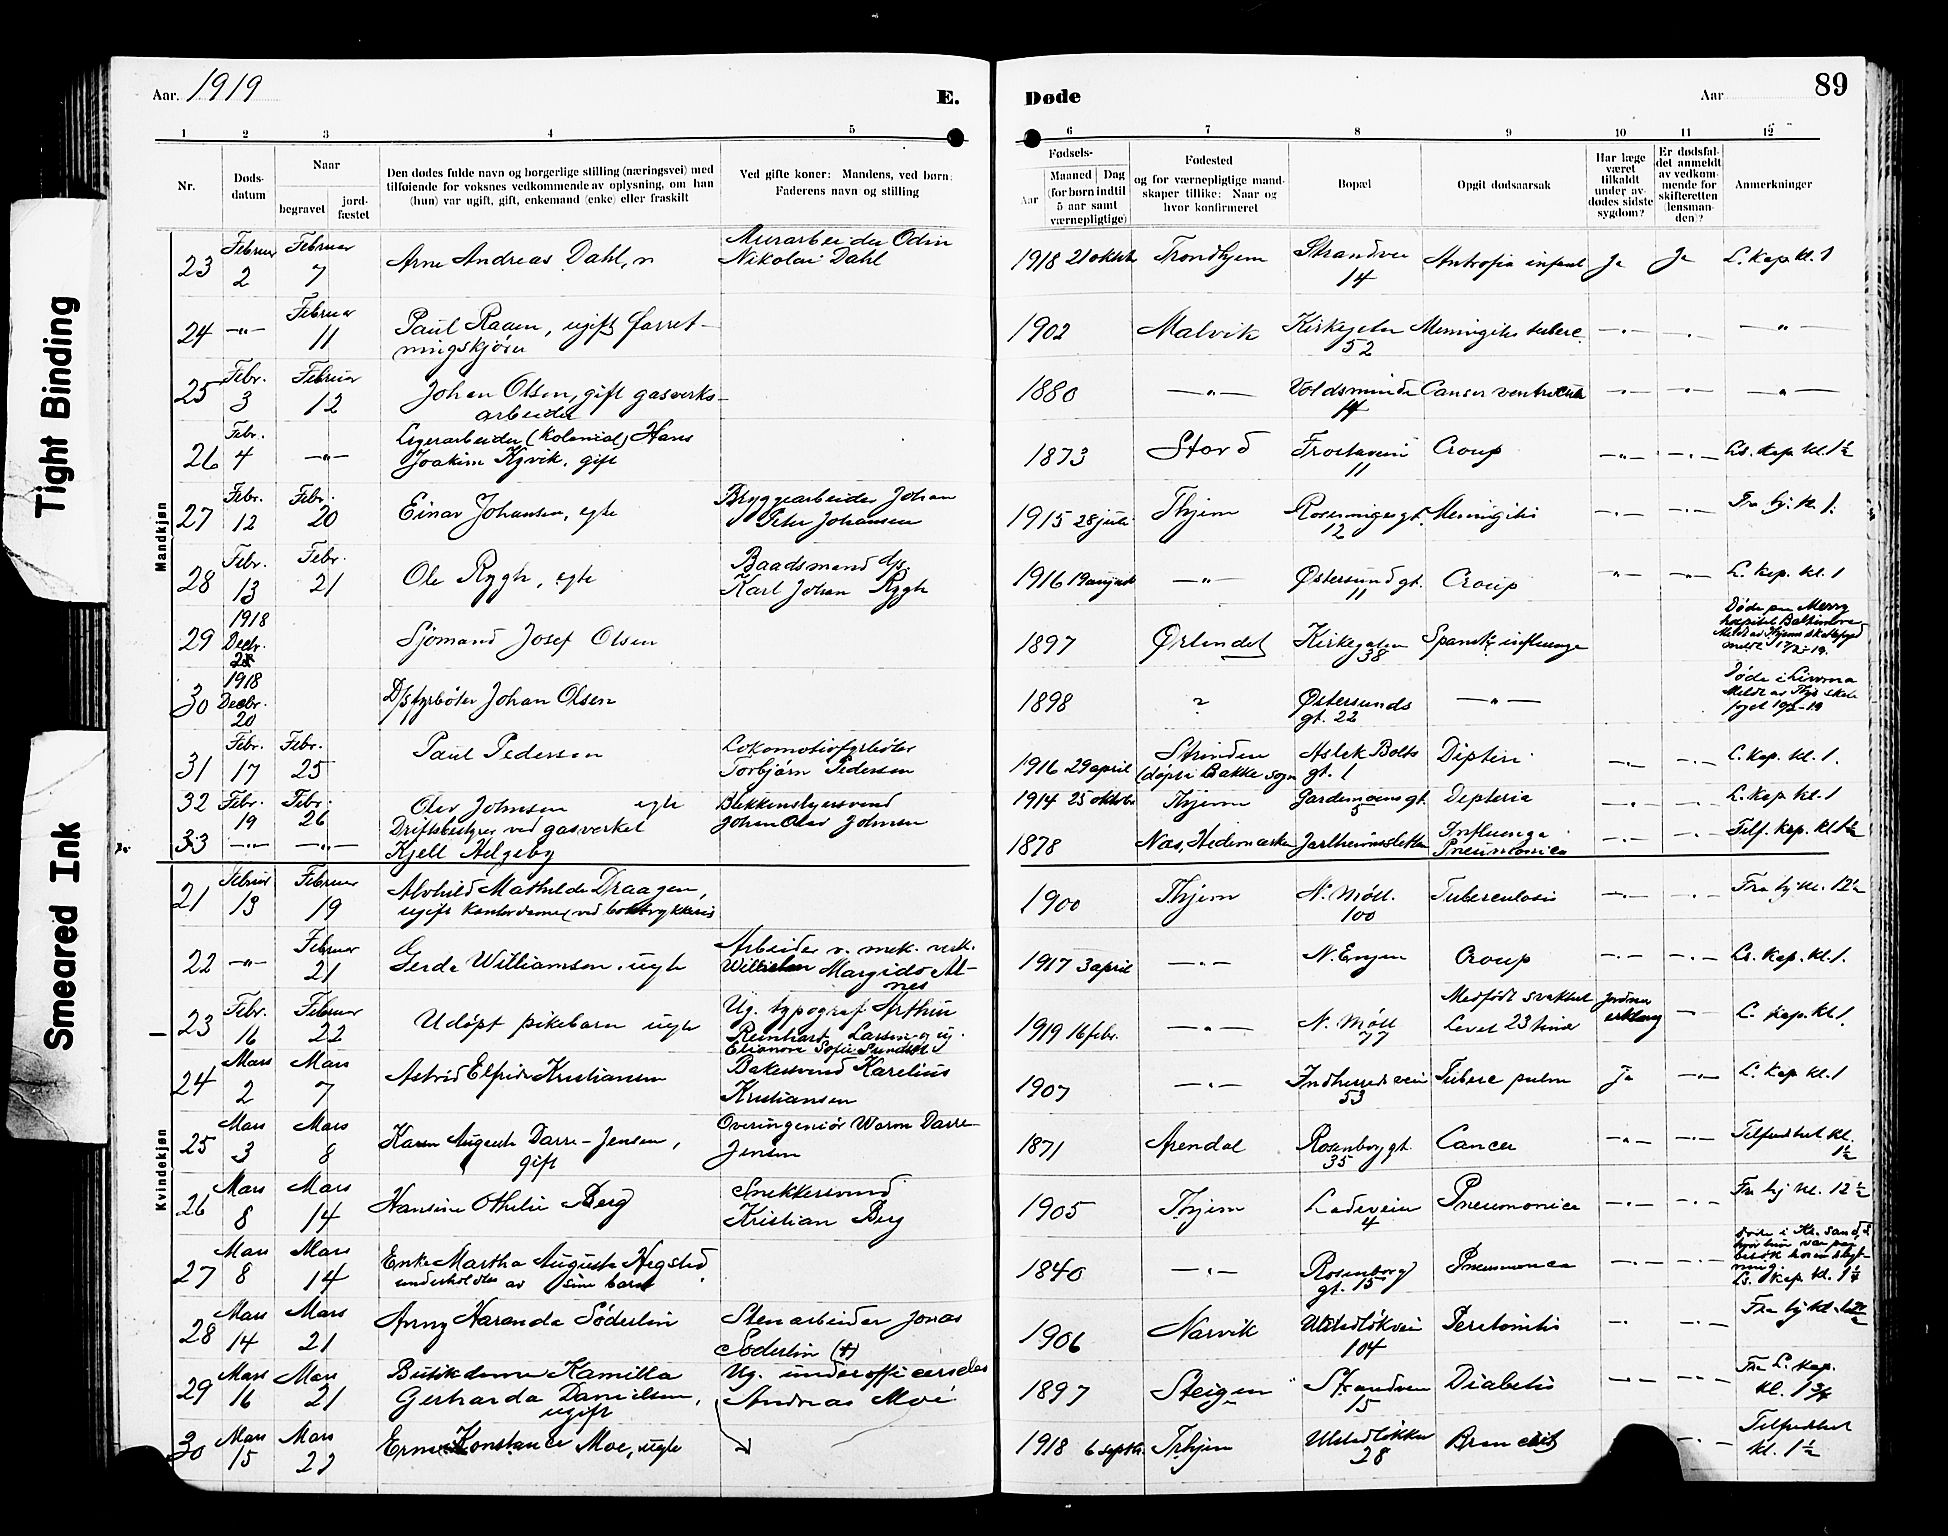 Tight Binding
Smeared Ink
Aar. 1919
E.
Døde
Aar
89
1 2 3 4 5 6 7 8 9 10 11 12
Nr.
Døds-
datum
Naar
begravet
jord-
fæstet
Den dødes fulde navn og borgerlige stilling (næringsvei) med
tilføiende for voksnes vedkommende av oplysning, om han
(hun) var ugift, gift, enkemand (enke) eller fraskilt
Ved gifte koner: Mandens, ved børn:
Faderens navn og stilling
Fødsels-
Aar
Maaned Dag
(for børn indtil
5 aar samt
værnepligtige)
Fødested
og for værnepligtige mand-
skaper tillike: Naar og
hvor konfirmeret
Bopæl
Opgit dødsaarsak
Har læge
været
tilkaldt
under av-
dødes sidste
sygdom?
Er dødsfal-
det anmeldt
av vedkom-
mende for
skifteretten
(lensman-
den)?
Anmerkninger
Mandkjøn
23 Februar 2 Februar 7 Arne Andreas Dahl, Murarbeider Odin
Nikolai Dahl 1918 21 oktbr Trondhjem Strandvei 14 Antrofia infant Ja Ja L. kap. kl. 1
24 —"— Februar 11 Paul Raaen, ugift forret-
ningskjører 1902 Malvik Kirkegaten 52 Meningitis tuberc. —"— —"— —"—
25 Febr. 3 Februar 12 Johan Olsen, gift gasverks-
arbeider 1880 —"— Voldsminde 14 Cancer ventriculi —"— —"— —"—
26 Febr. 4 —"— Lagerarbeider (kolonial) Hans
Joakim Kyvik, gift 1873 Stord Frostaveien 11 Croup —"— —"— Ls. kap. kl. 1½
27 Febr. 12 Febr. 20 Einar Johansen, egte Bryggearbeider Johan
Peter Johansen 1915 28 juli Thjem 12 Meningitis —"— —"— Fra hj. kl. 1.
28 Febr. 13 Febr. 21 Ole Rygh, egte Baadsmand d/s.
Karl Johan Rygh 1916 19 august —"— Østersundsgt. 11 Croup —"— —"— L. kap. kl. 1
29 1918 Decbr. Sjömand Josef Olsen 1897 Ørlandet Kirkegaten 38 Spansk influenza Døde paa Mercy
hospital Baltimore
30 1918 Decbr. 20 D/s fyrbøter Johan Olsen 1898 ? Østersunds
gt. 22 —"— Døde i
31 Febr. 17 Febr. 25 Paul Pedersen Lokomotivfyrbøter
Torbjørn Pedersen 1916 29 april Strinden
(døpt i Bakke sogn Aslak Bolts
gt. 1 Difteri —"— —"— L. kap. kl. 1.
32 Febr. 19 Febr. 26 Olav Johnsen egte Blikkenslagersvend
Johan Olav Johnsen 1914 25 oktbr Thjem Gardemoensgt. 5 Difteria —"— —"— L. kap. kl. 1
33 —"— —"— Driftsbestyrer ved gasverket
Kjell Helgeby 1878 Nes, Hedemarken Influenza
Pneumonica —"— —"— Tilf. kap. kl. 1½
Kvindekjøn
21 Februar 13 Februar 19 Alvhild Mathilde Draagen,
ugift kontordame (ved boktrykkeri) 1900 Thjem N. Møll. 100 Tuberculosis —"— —"— Fra hj. kl. 12½
22 —"— Februar 21 Gerda Williamsen, uegte Arbeider v. mek. verk.
Margido Al-
nes 1917 3 april —"— N. Engen Croup —"— —"— Ls. kap. kl. 1.
23 Febr. 16 Februar 22 Udöpt pikebarn uegte Ug. typograf Arthur
Reinhart Larsen og ug.
Elianora Sofie 1919 16 febr. —"— N. Møll 77 Medfödt svakhet
Levet 23 timer Jordmor
erklæring — L. kap. kl. 1.
24 Mars 2 Mars 7 Astrid Elfrida Kristiansen Bakersvend Karelius
Kristiansen 1907 —"— Indherredsveien 53 Tuberc pulm Ja —"— L. kap kl. 1
25 Mars 3 Mars 8 Karen Augusta Darre-Jensen,
gift Overingeniør Worm Darre-
Jensen 1871 Arendal Rosenborg gt. 35 Cancer —"— —"— Tilfredshet kl.
1½
26 Mars 8 Mars 14 Hansine Othelie Berg Snekkersvend
Kristian Berg 1905 Thjem Ladeveien 4 Pneumonica —"— —"— Fra hj kl. 12½
27 Mars 8 Mars 14 Enke Martha Augusta Hegstad,
underholdtes av sine barn 1840 —"— Rosenborg
gt. 15 Pneumonica —"— —"— Døde i Kr.sand,
hvor hun var paa
besök hos en slægt-
ning.
Ls. kap. kl. 1¼
28 Mars 14 Mars 21 Anny Haranda Söderlin Stenarbeider Jonas
Soderlin (†) 1906 Narvik Ulstadløkvei 104 Peritonitis —"— —"— Fra hj kl.
29 Mars 16 Mars 21 Butikdame Kamilla
Gerharda Danielsen,
ugift Ug. underofficerselev
Andreas Moe 1897 Steigen Strandveien 15 Diabetis —"— —"— Fra L. kap.
kl. 1¾
30 Mars 15 Mars 22 Erna Konstance Moe, uegte 1918 6 septbr. Trhjem Ulstadløkken 28 Bronchit —"— Tilfredshet
kl. 1½